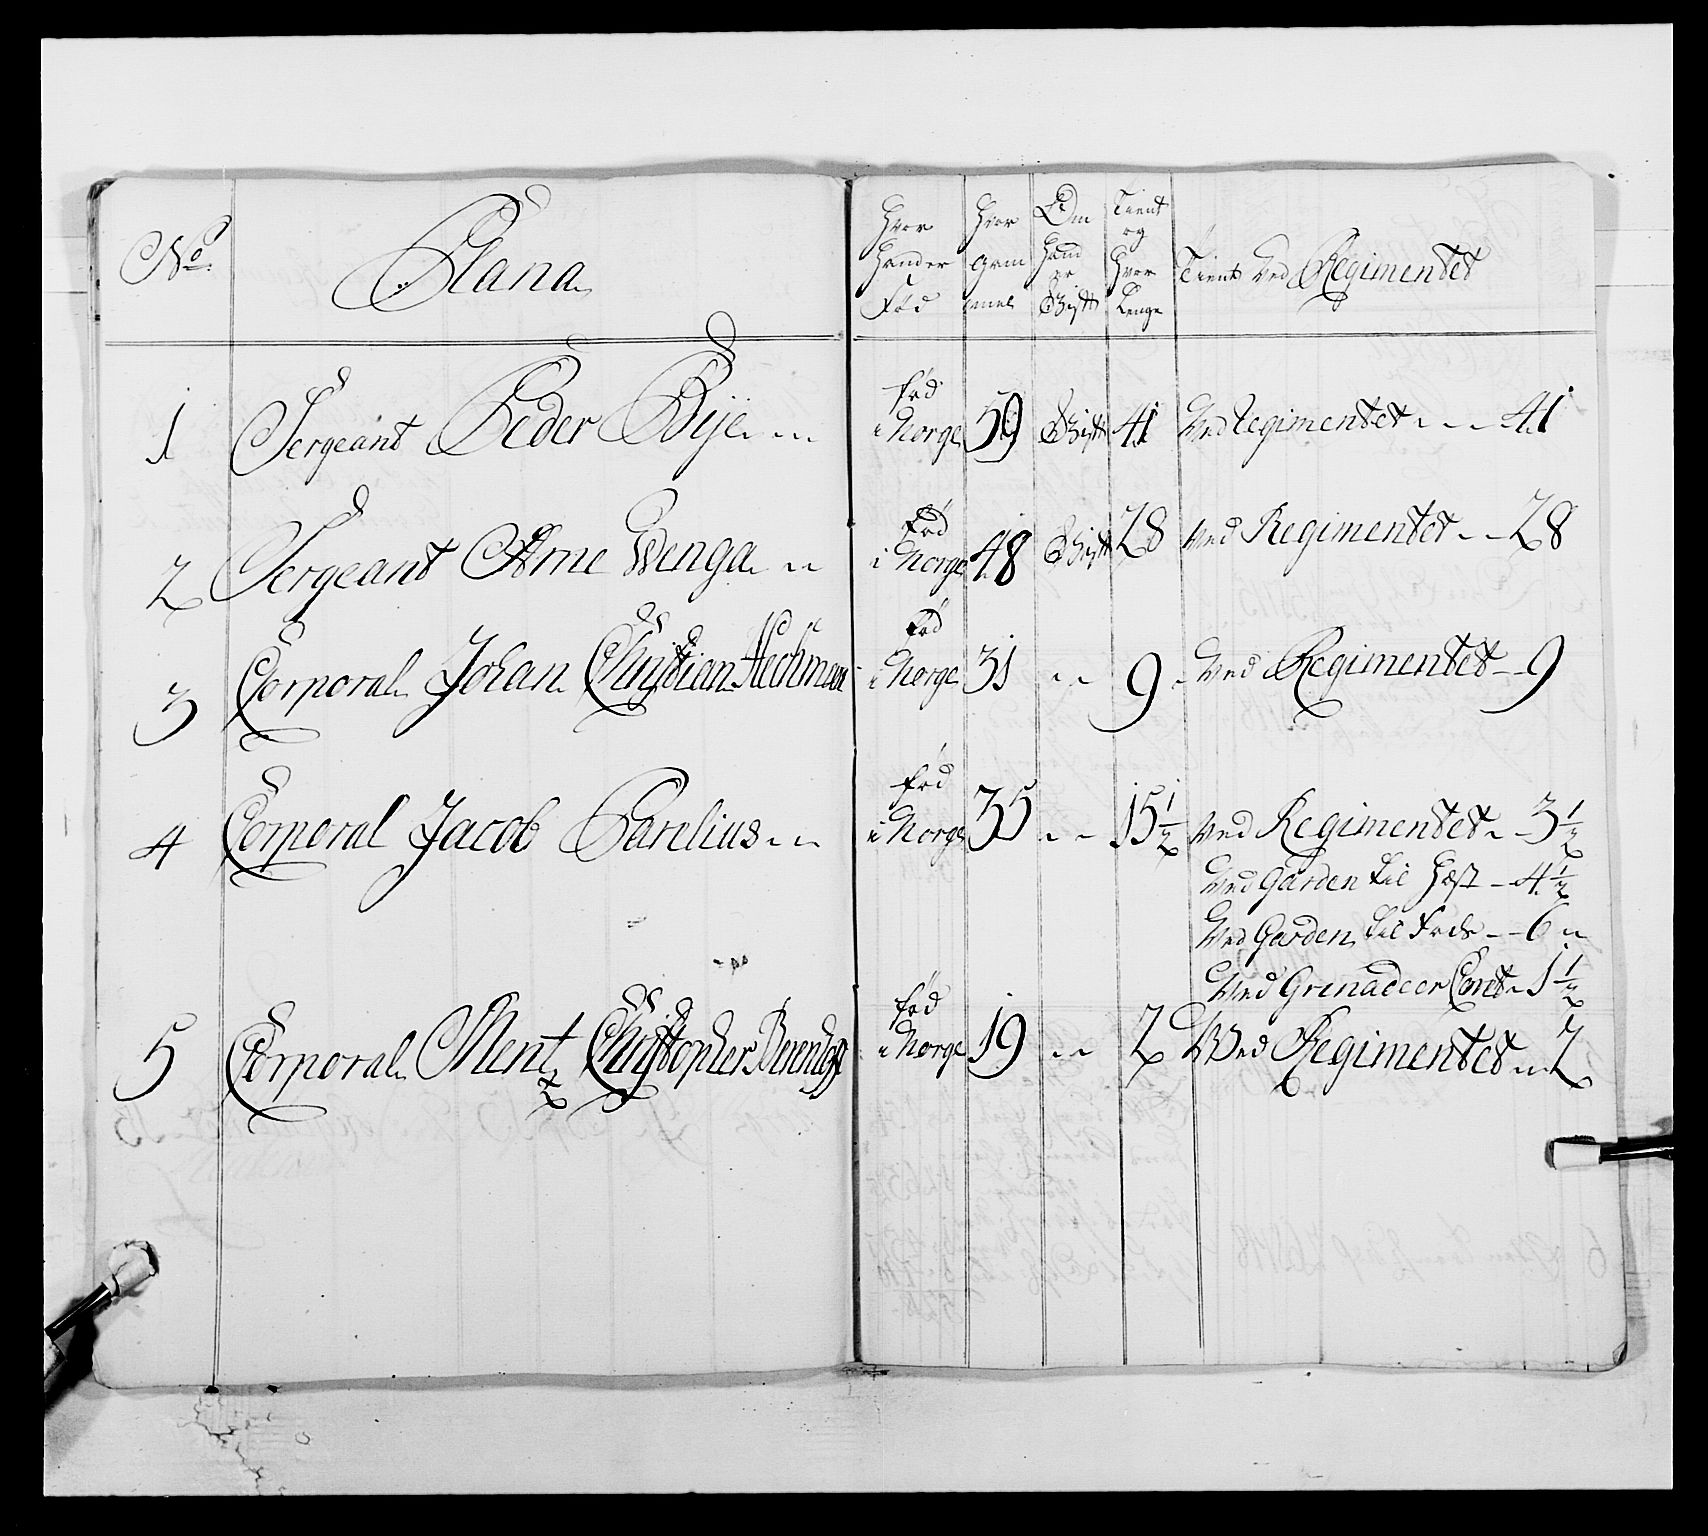 No. Plana Hvor Hand er Fød Hvor Gammel Om Hand er Gift Tient og Hvor Lenge Tient Ved Regimentet
1 Sergeant Peder Bije fød i Norge 59 Gift 41 Ved Regimentet 41
2 Sergeant Arne Wenga fød i Norge 48 Gift 28 Ved Regimentet 28
3 Corporal Johan Christian Hechman fød i Norge 31 9 Ved Regimentet 9
4 Corporal Jacob Parelius fød i Norge 35 15 1/2 Ved Regimentet 3 1/2
Ved Garden til Hest 4 1/2
Ved Garden til Fods 6
Ved Grenadeer Corpset 1 1/2
5 Corporal Mentz Christopher fød i Norge 19 2 Ved Regimentet 2